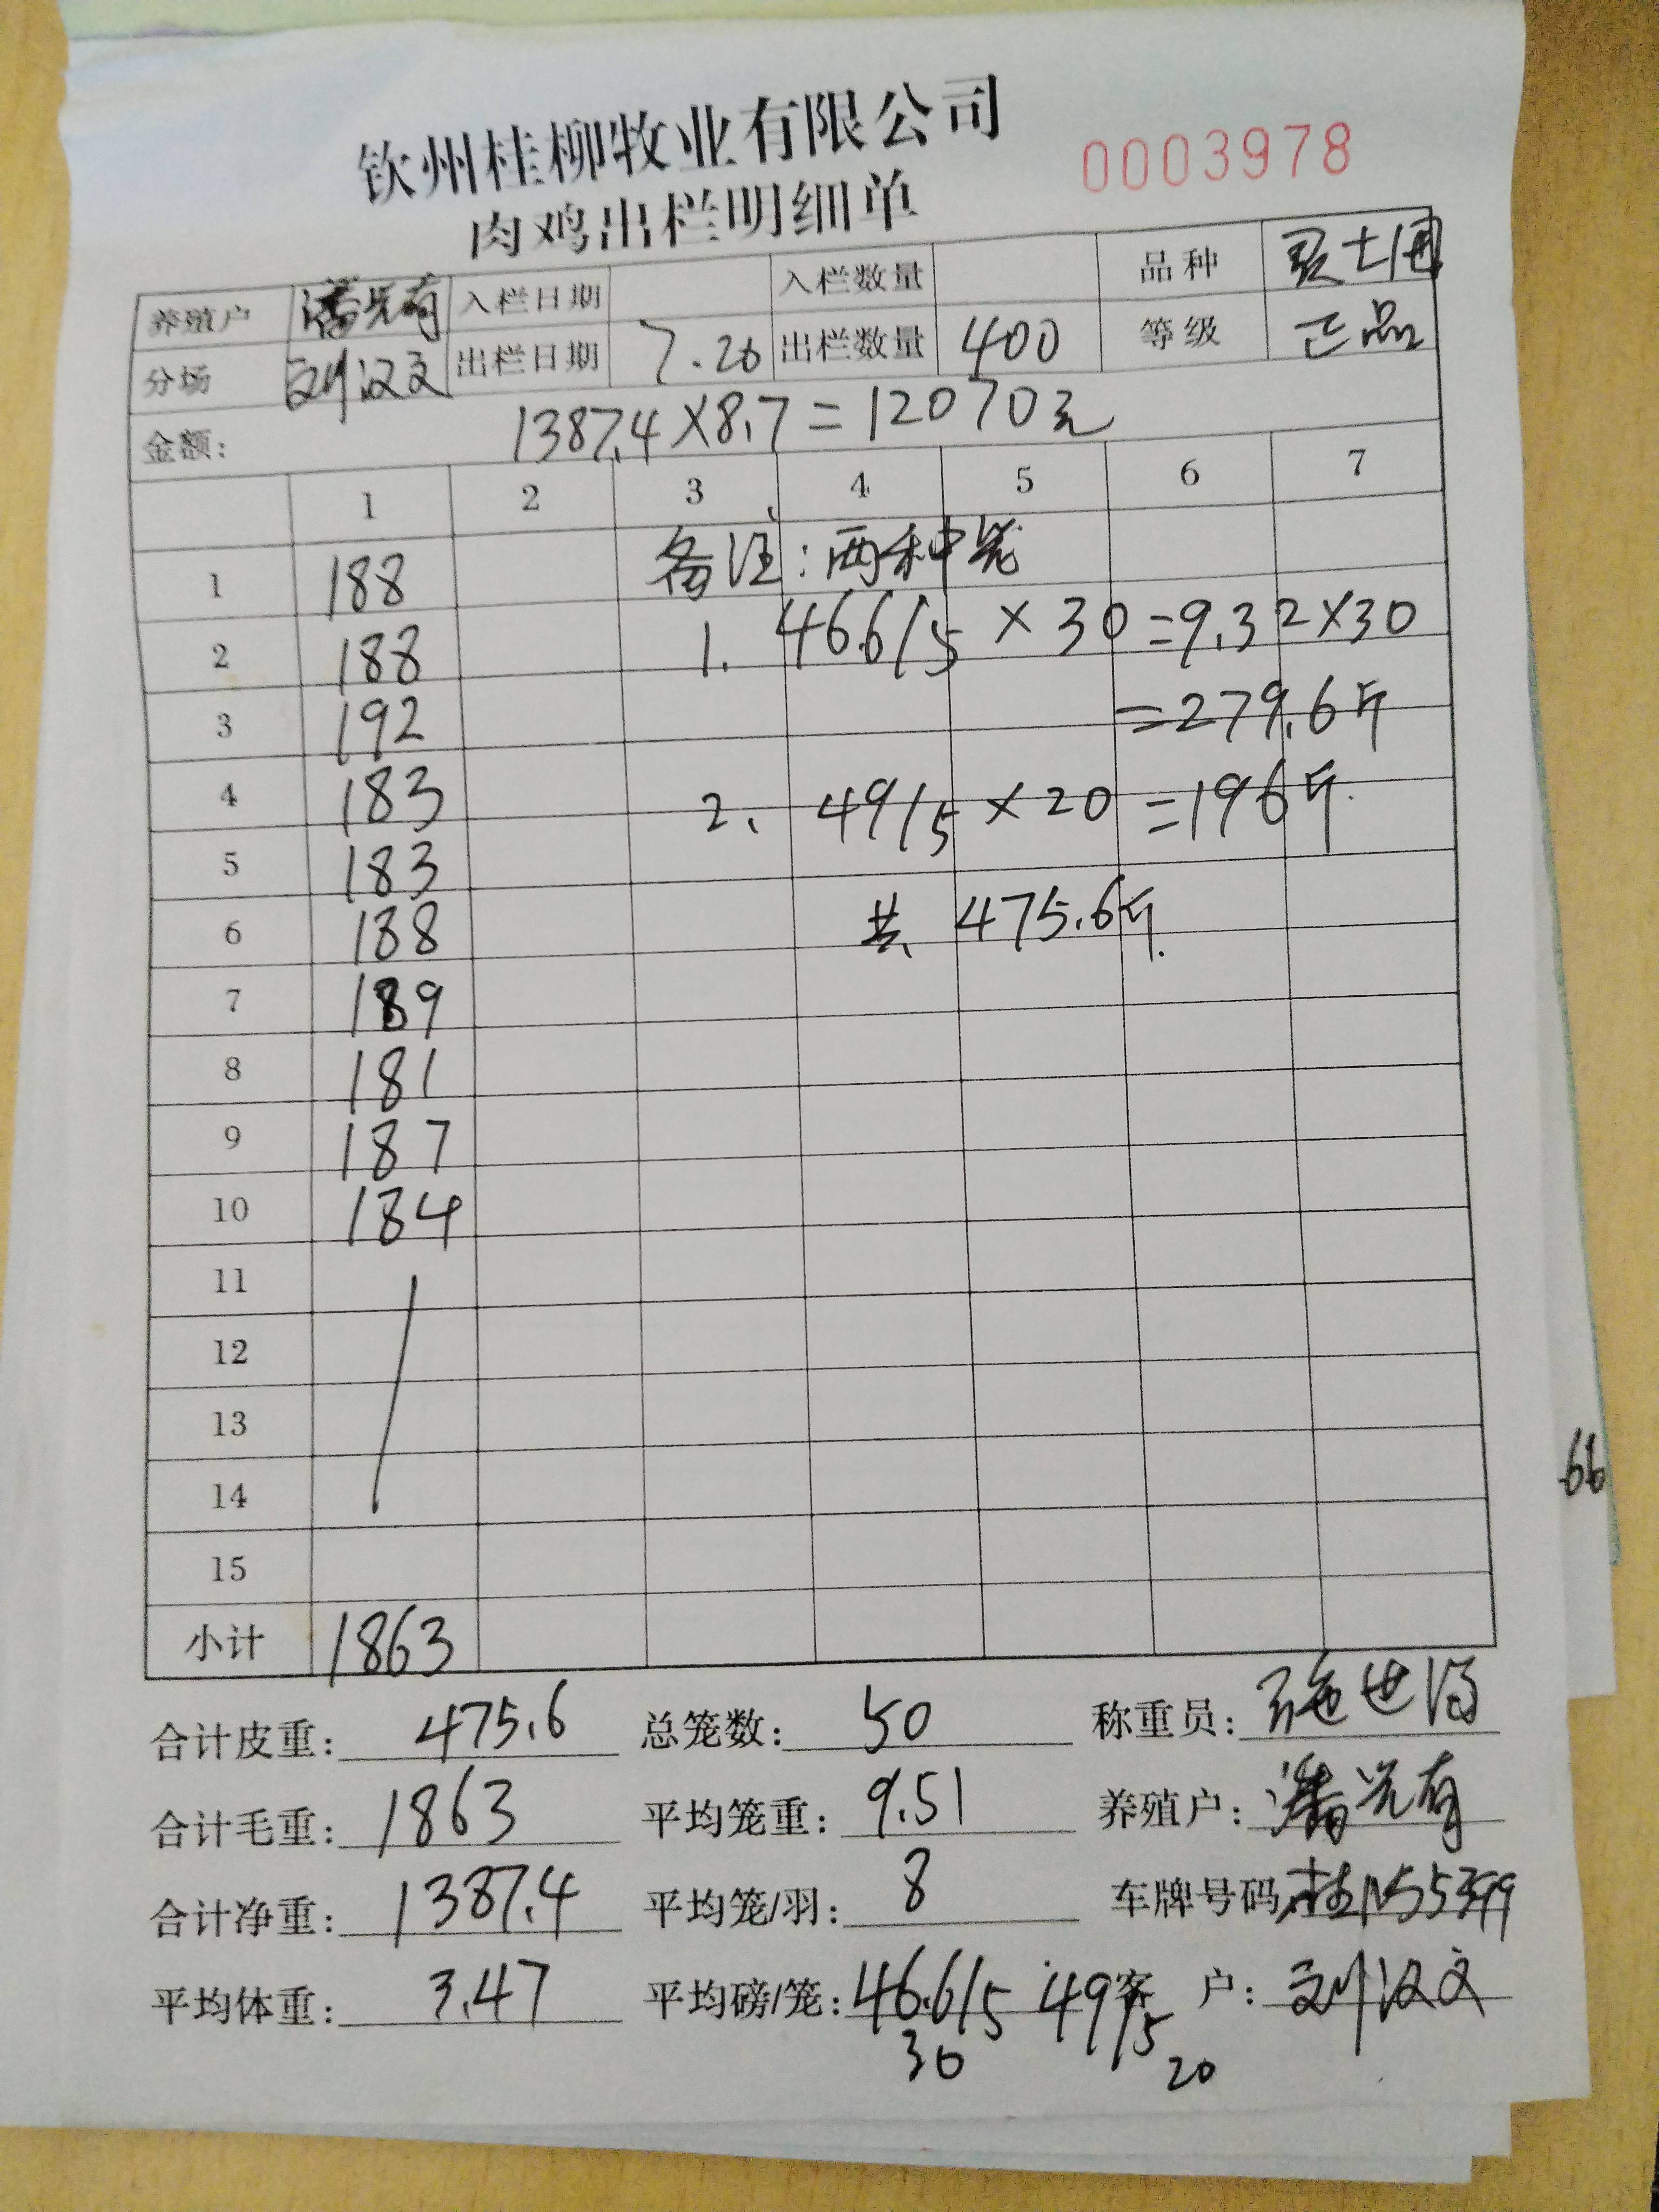 钦州桂柳牧业有限公司
肉鸡出栏明细单 0003978
养殖户 潘光有 入栏日期 入栏数量 品种
分场 刘汉文 出栏日期 7.26 出栏数量 400 等级 正品
金额: 1387.4×8.7=12070元
1 2 3 4 5 6 7
备注:两种笼
1 188
2 188 1. 46.6/5 ×30=9.32×30
3 192 =279.6斤
4 183 2. 49/5 ×20 =196斤.
5 183
6 188 共 475.6斤.
7 189
8 181
9 187
10 184
11
12
13
14
15
小计 1863
合计皮重: 475.6 总笼数: 50 称重员:
合计毛重: 1863 平均笼重: 9.51 养殖户: 潘光有
合计净重: 1387.4 平均笼/羽: 8 车牌号码:
平均体重: 3.47 平均磅/笼: 46.6/5 49/5 客 户: 刘汉文
30 20
66